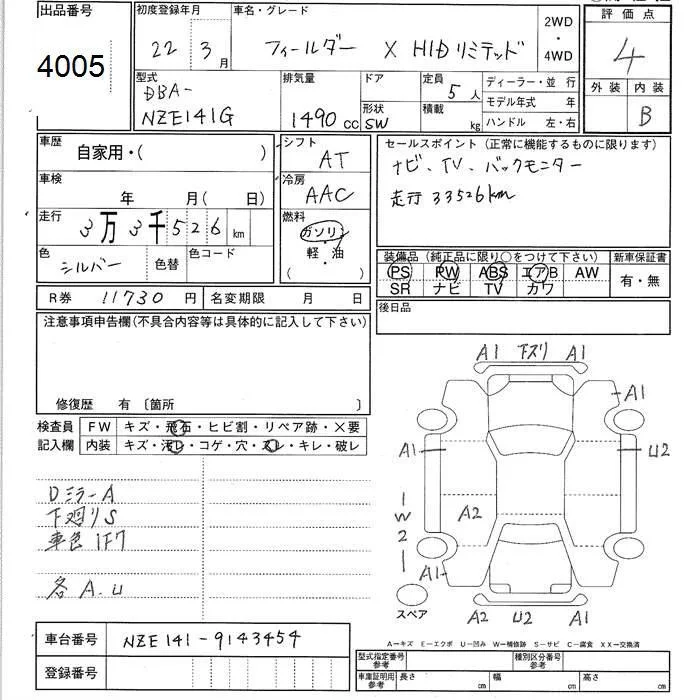 出品番号
4005
初度登録年月
22 3 月
車名・グレード
フィールダー X HIDリミテッド
2WD
・
4WD
評価点
4
外装 内装
B
型式
DBA-
NZE141G
排気量
1490 cc
ドア
形状
SW
定員
5 人
積載
kg
ディーラー・並 行
モデル年式 年
ハンドル 左・右
車歴
自家用・( )
車検
年 月( 日)
走行
3万3千526 km
色
シルバー
色替
色コード
シフト
AT
冷房
AAC
燃料
ガソリン
・
軽・油
( )
セールスポイント(正常に機能するものに限ります)
ナビ、TV、バックモニター
走行 33526km
装備品(純正品に限り○をつけて下さい)
PS PW ABS エアB AW
SR ナビ TV カワ
新車保証書
有・無
R券 11730 円
名変期限 月 日
後日品
注意事項申告欄(不具合内容等は具体的に記入して下さい)
修復歴 有 〔箇所 〕
検査員
記入欄
FW キズ・飛石・ヒビ割・リペア跡・×要
内装 キズ・汚レ・コゲ・穴・スレ・キレ・破レ
Dミラー A
下廻り S
車色 1F7
各 A.U
A1 下スリ A1
A1
A1
U2
A2
W2
A1
スペア
A2 U2 A1
A=キズ E=エクボ U=凹み W=補修跡 S=サビ C=腐食 XX=交換済
車台番号 NZE141-9143454
登録番号
型式指定番号
参考
種別区分番号
参考
車庫証明用
参考
長さ cm 幅 cm 高さ cm